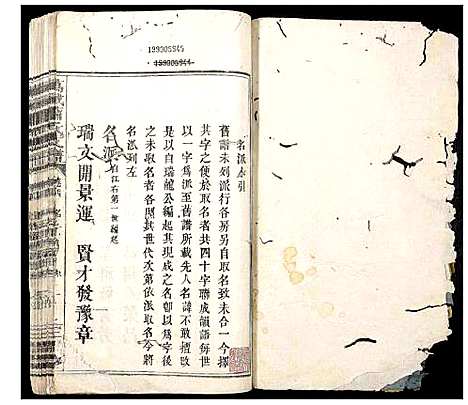 199005945
199005944
名派小引
舊譜未列派行各房另自取名致未合一今擇
其字之便於取名者共四十字聯成韻語每世
以一字為派至舊譜所載先人名諱不敢擅改
之是以自瑞龍公編起其現成之名卽以為字後
之未取名者各照其世代次第依派取名今將
名派列左
名派
自江右第一世編起
瑞文開景運 賢才發豫章